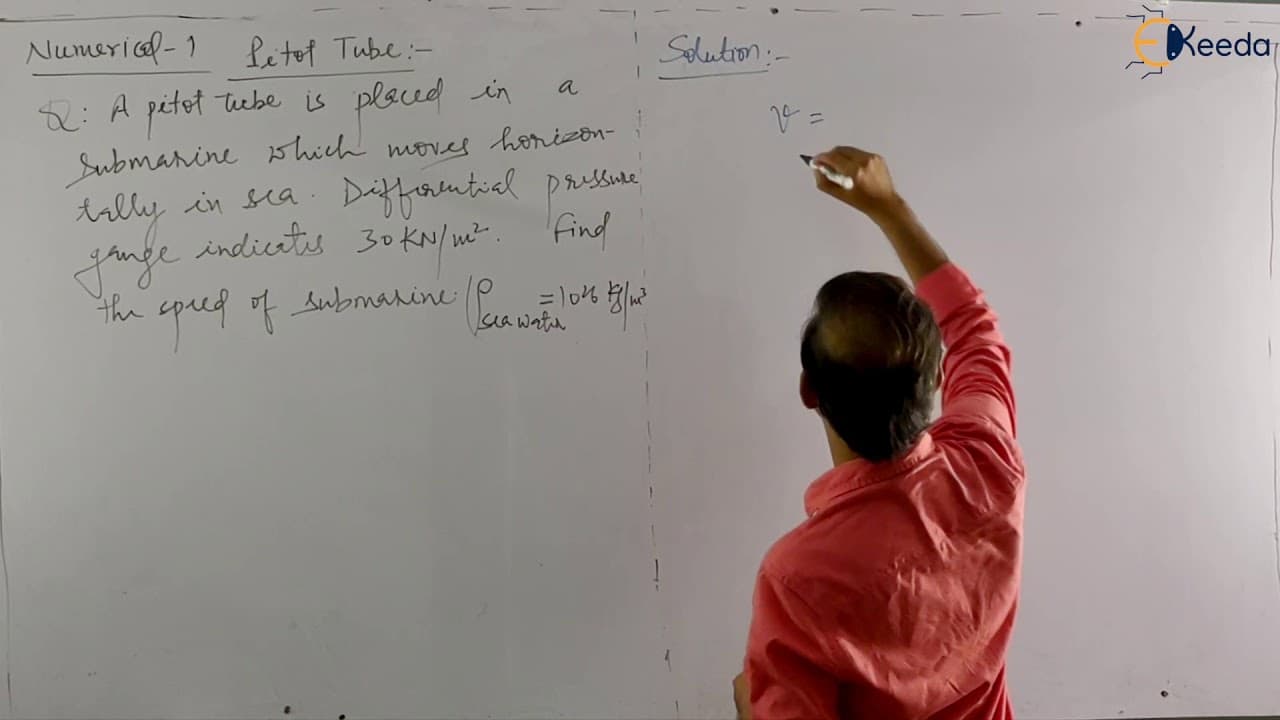 Numerical-1 Pitot Tube:-
Q: A pitot tube is placed in a
submarine which moves horizon-
tally in sea. Differential pressure
gauge indicates 30 KN/m². Find
the speed of submarine. (ρ sea water = 1026 kg/m³
Solution:-
v =
EKeeda